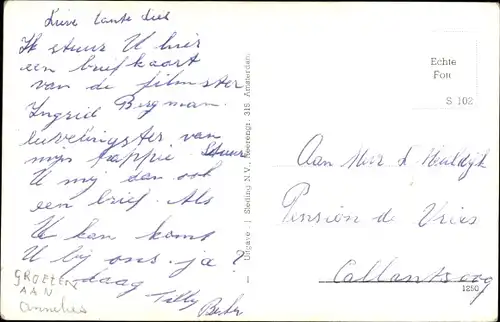 Lieve tante Diet
Ik stuur U hier
een briefkaart
van de filmster
Ingrid Bergman.
lievelingster van
mijn pappie. Stuur
U mij dan ook
een brief. Als
U kan komt
U bij ons. ja?
daag
Tilly
GROETEN
AAN
Annelies
Uitgave: Sleding N.V., Heerengr. 315 Amsterdam
Echte
Foto
S 102
Aan Mevr d
Pension de Vries
Callantsoog
1250